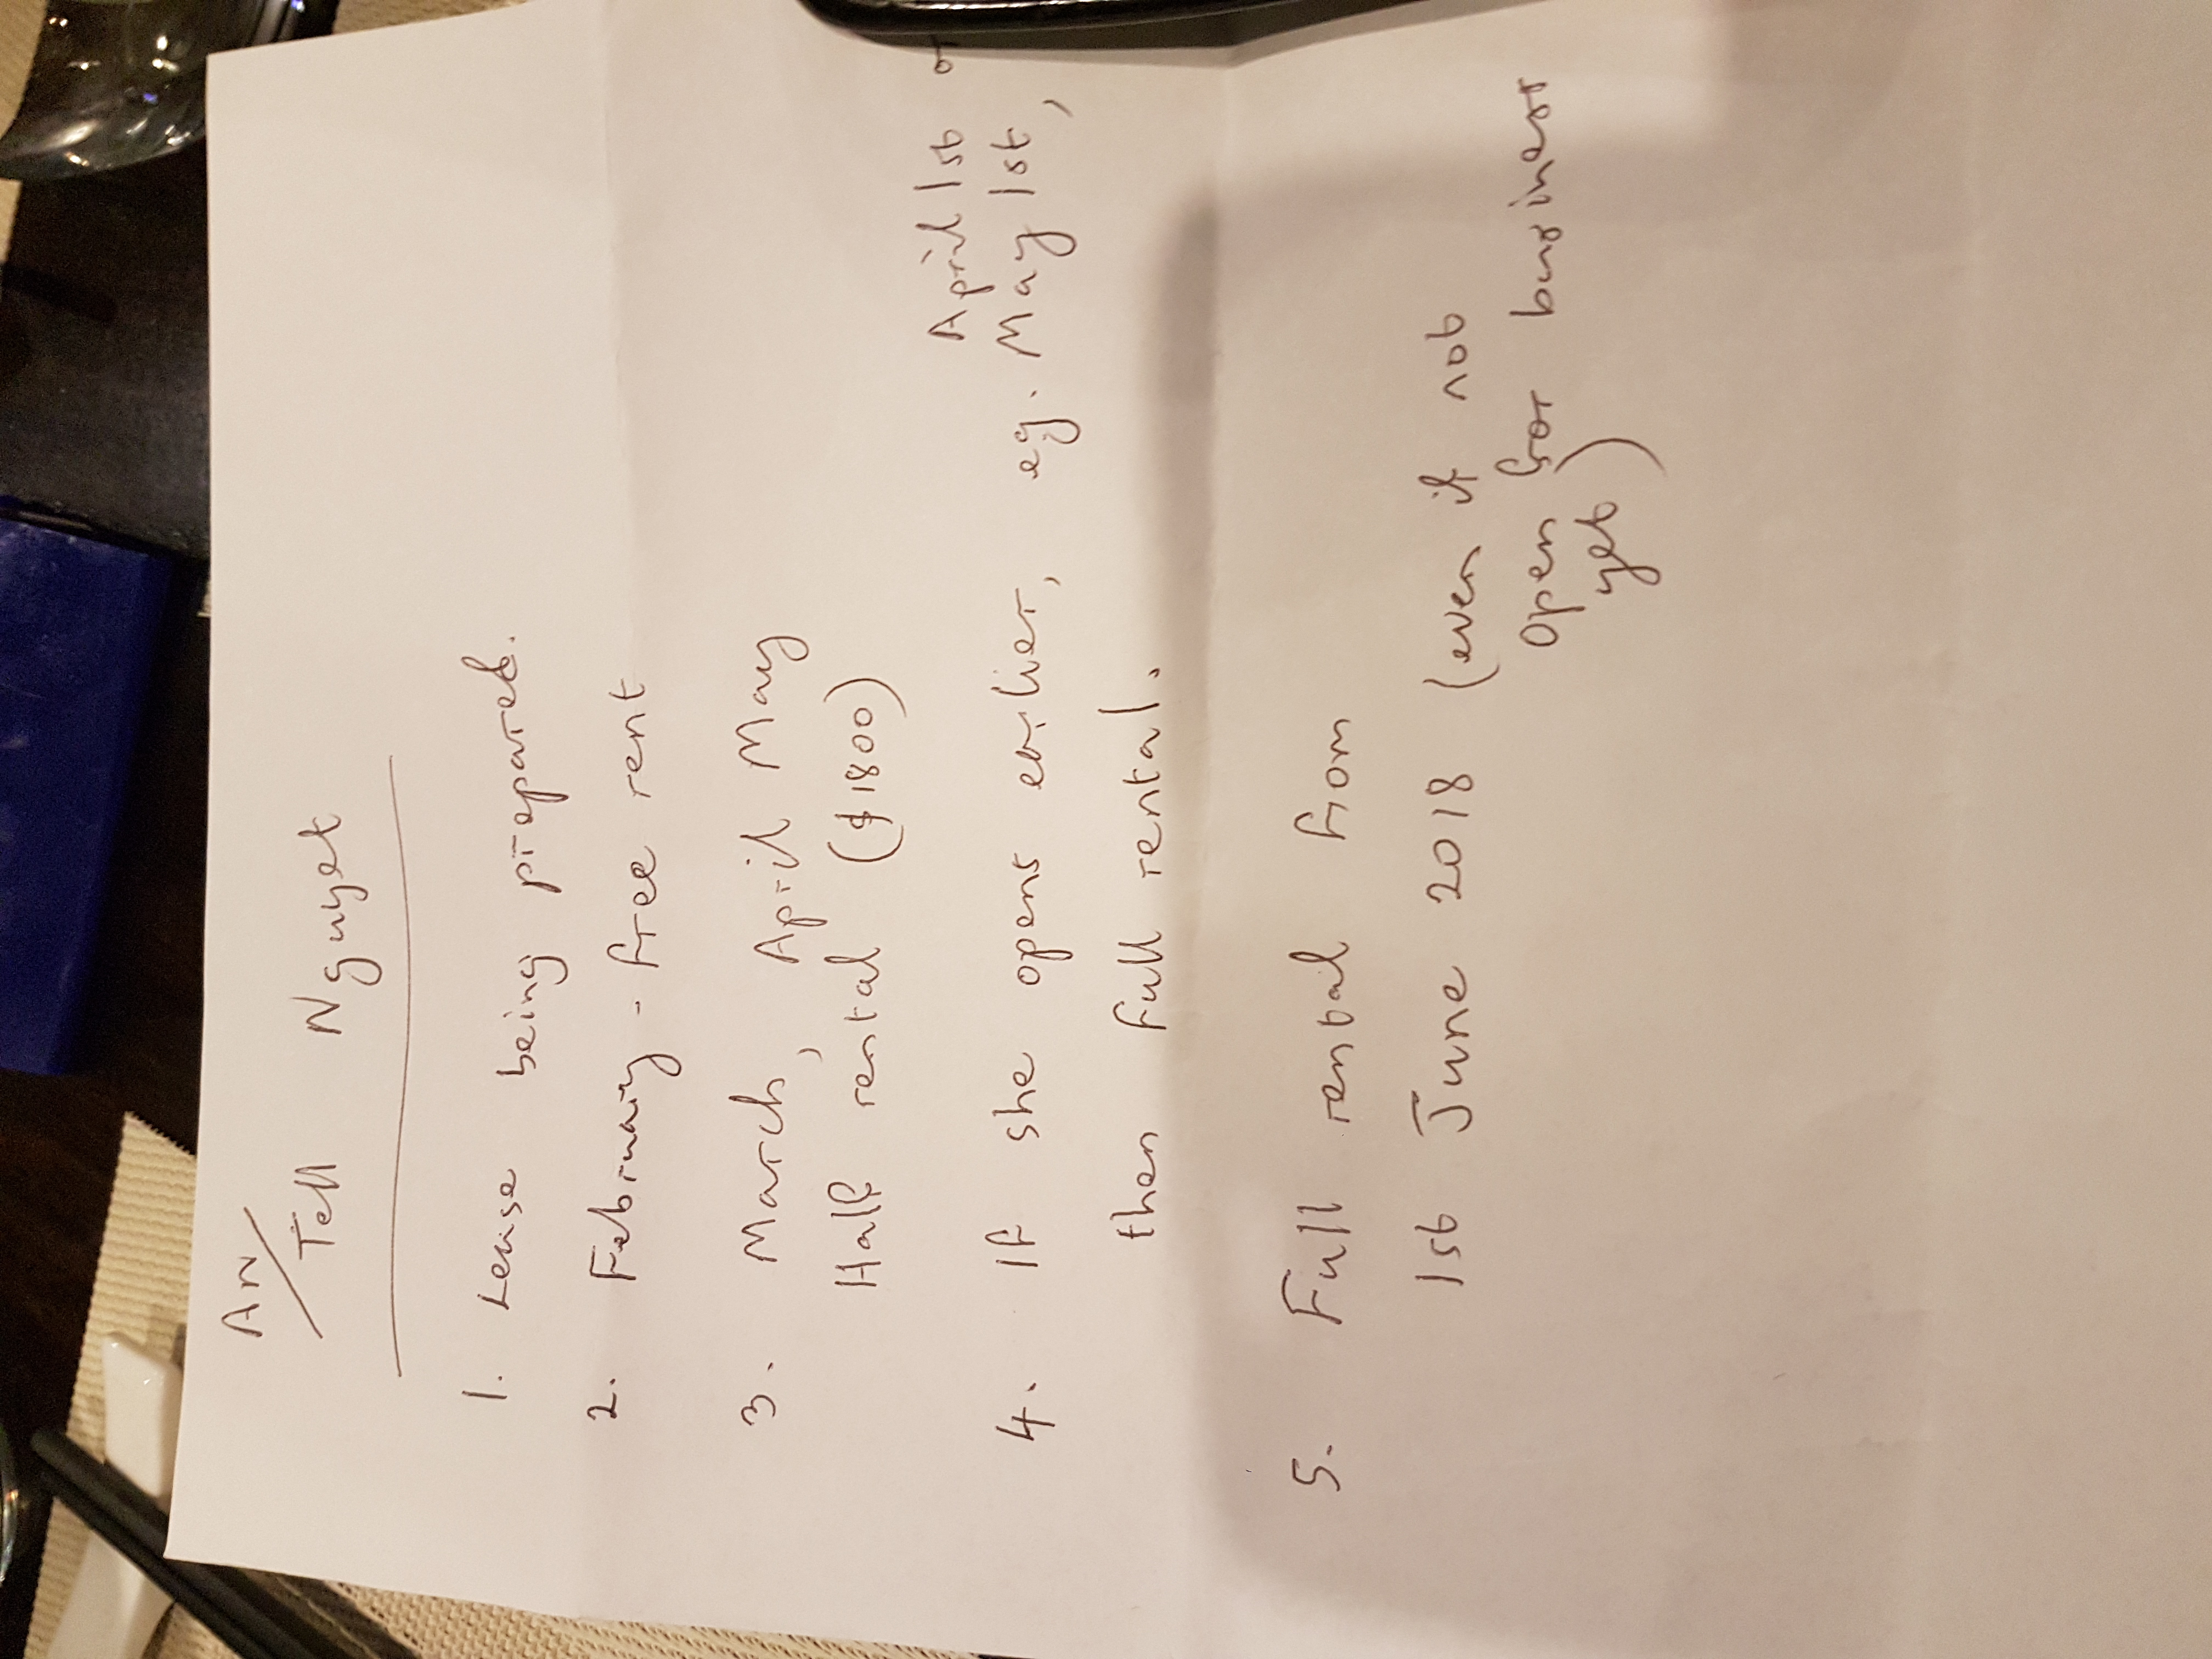 AN
/ Tell Nguyet
1. Lease being prepared.
2. February - free rent
3. March, April May
Half rental ($1800)
April 1st or
4. If she opens earlier, eg. May 1st,
then full rental.
5. Full rental from
1st June 2018 (even if not
open for business
yet)